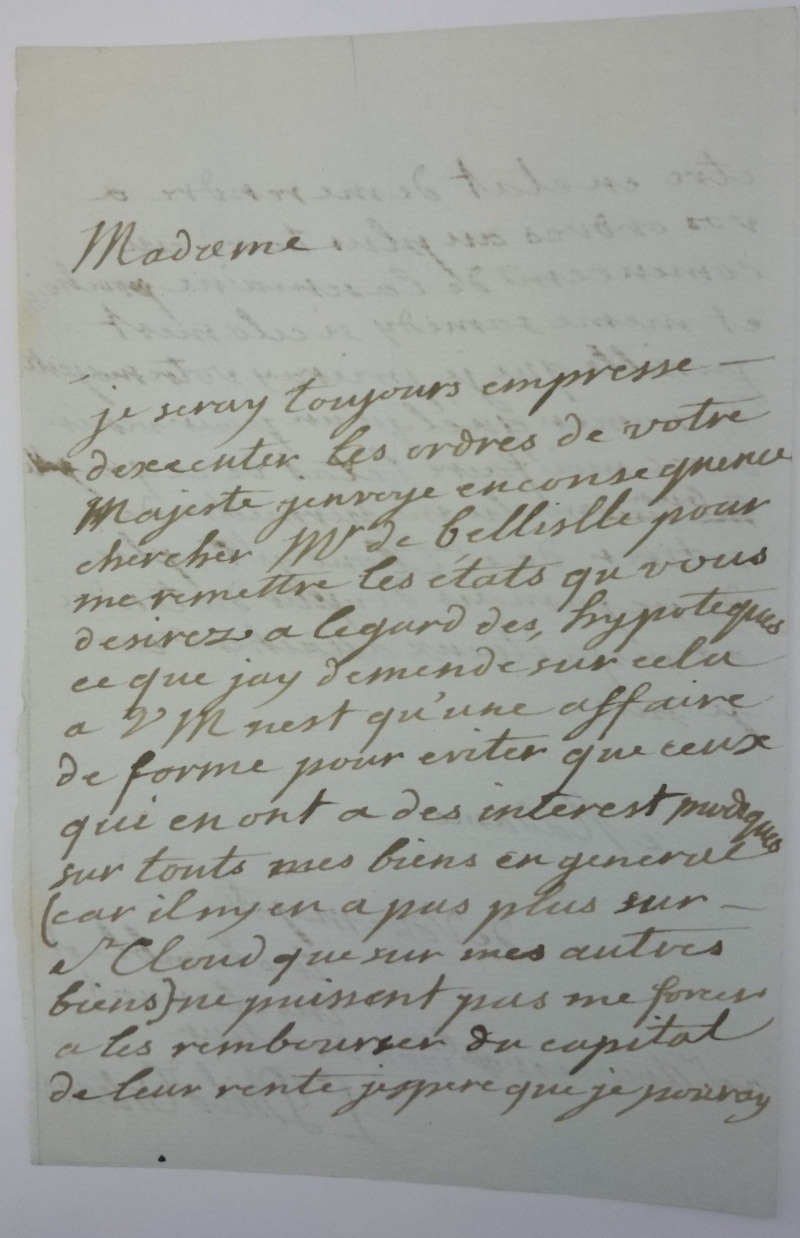 Madame
je seray toujours empresse —
dexecuter les ordres de votre
Majeste jenvoye enconsequence
chercher Mr de bellislle pour
me remettre les états qu vous
desirez a legard des, hypoteques
ce que jay demende sur cela
a V M nest qu'une affaire
de forme pour eviter que ceux
qui en ont a des interest
sur touts mes biens en general
(car il ny en a pas plus sur —
St Cloud que sur mes autres
biens) ne puissent pas me forcer
a les rembourser du capital
de leur rente jespere que je pouray